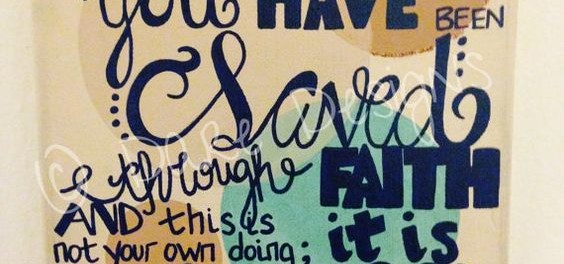 you HAVE BEEN
Saved
through FAITH
AND this is
not your own doing; it is